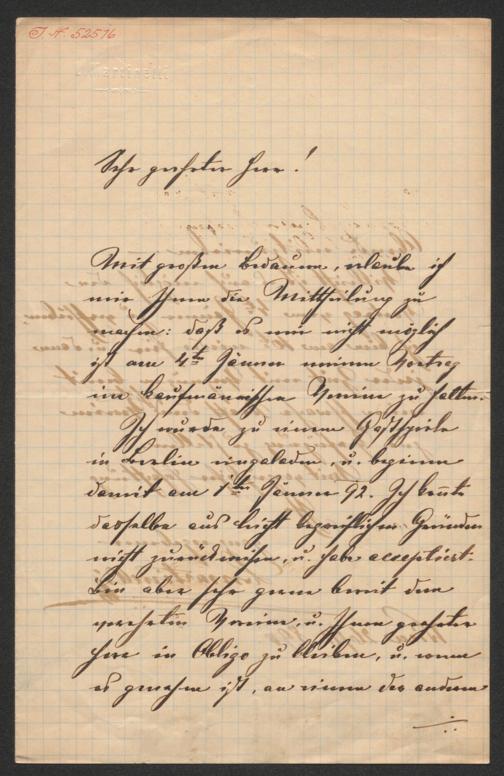 J. N. 52516
Martinelli
Sehr geehrter Herr!
Mit großem Bedauern, erlaube ich
mir Ihnen die Mittheilung zu
machen: daß es mir nicht möglich
ist am 4ten Jänner meinen Vortrag
im kaufmännischen Verein zu halten.
Ich wurde zu einem Gastspiele
in Berlin eingeladen, u. beginne
damit am 1ten Jänner 92. Ich konnte
dasselbe aus leicht begreiflichen Gründen
nicht zurückweisen, u. habe acceptiert.
Bin aber sehr gerne bereit dem
verehrten Vereine, u. Ihnen geehrter
Herr in Obligo zu bleiben, u. wenn
es genehm ist, an einem der anderen